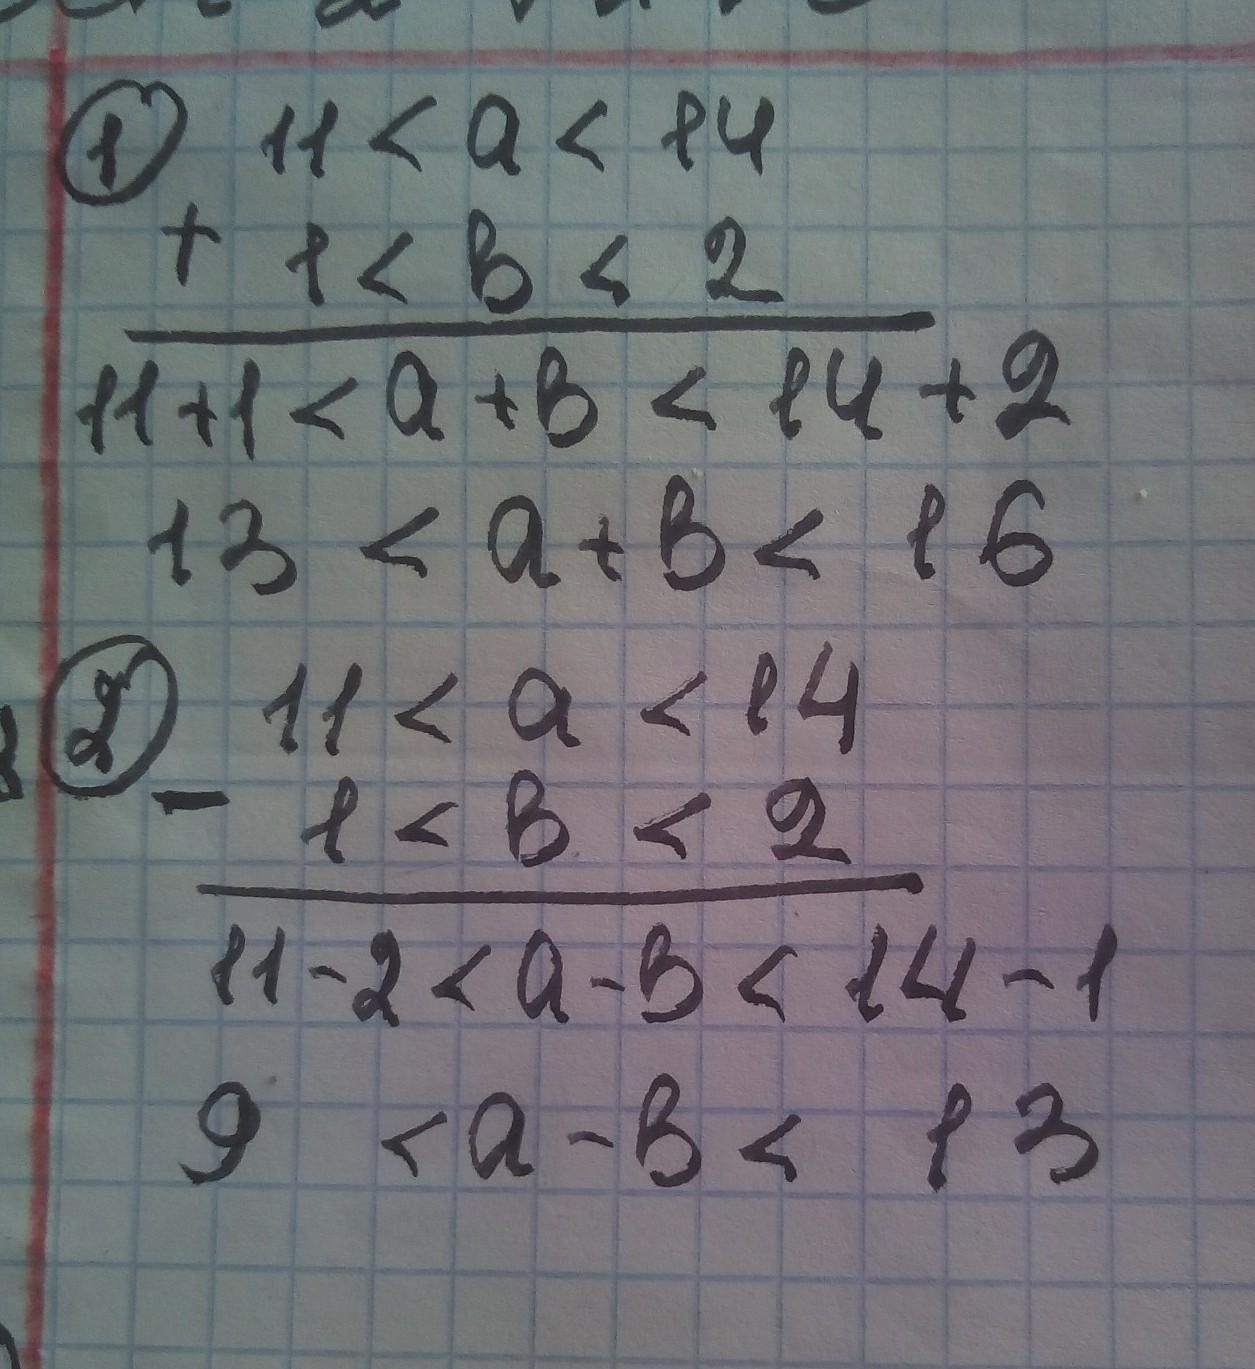 ① 11 < a < 14
+ 1 < в < 2
11+1 < a + в < 14 + 2
13 < a + в < 16
② 11 < a < 14
- 1 < в < 2
11 - 2 < a - в < 14 - 1
9 < a - в < 13